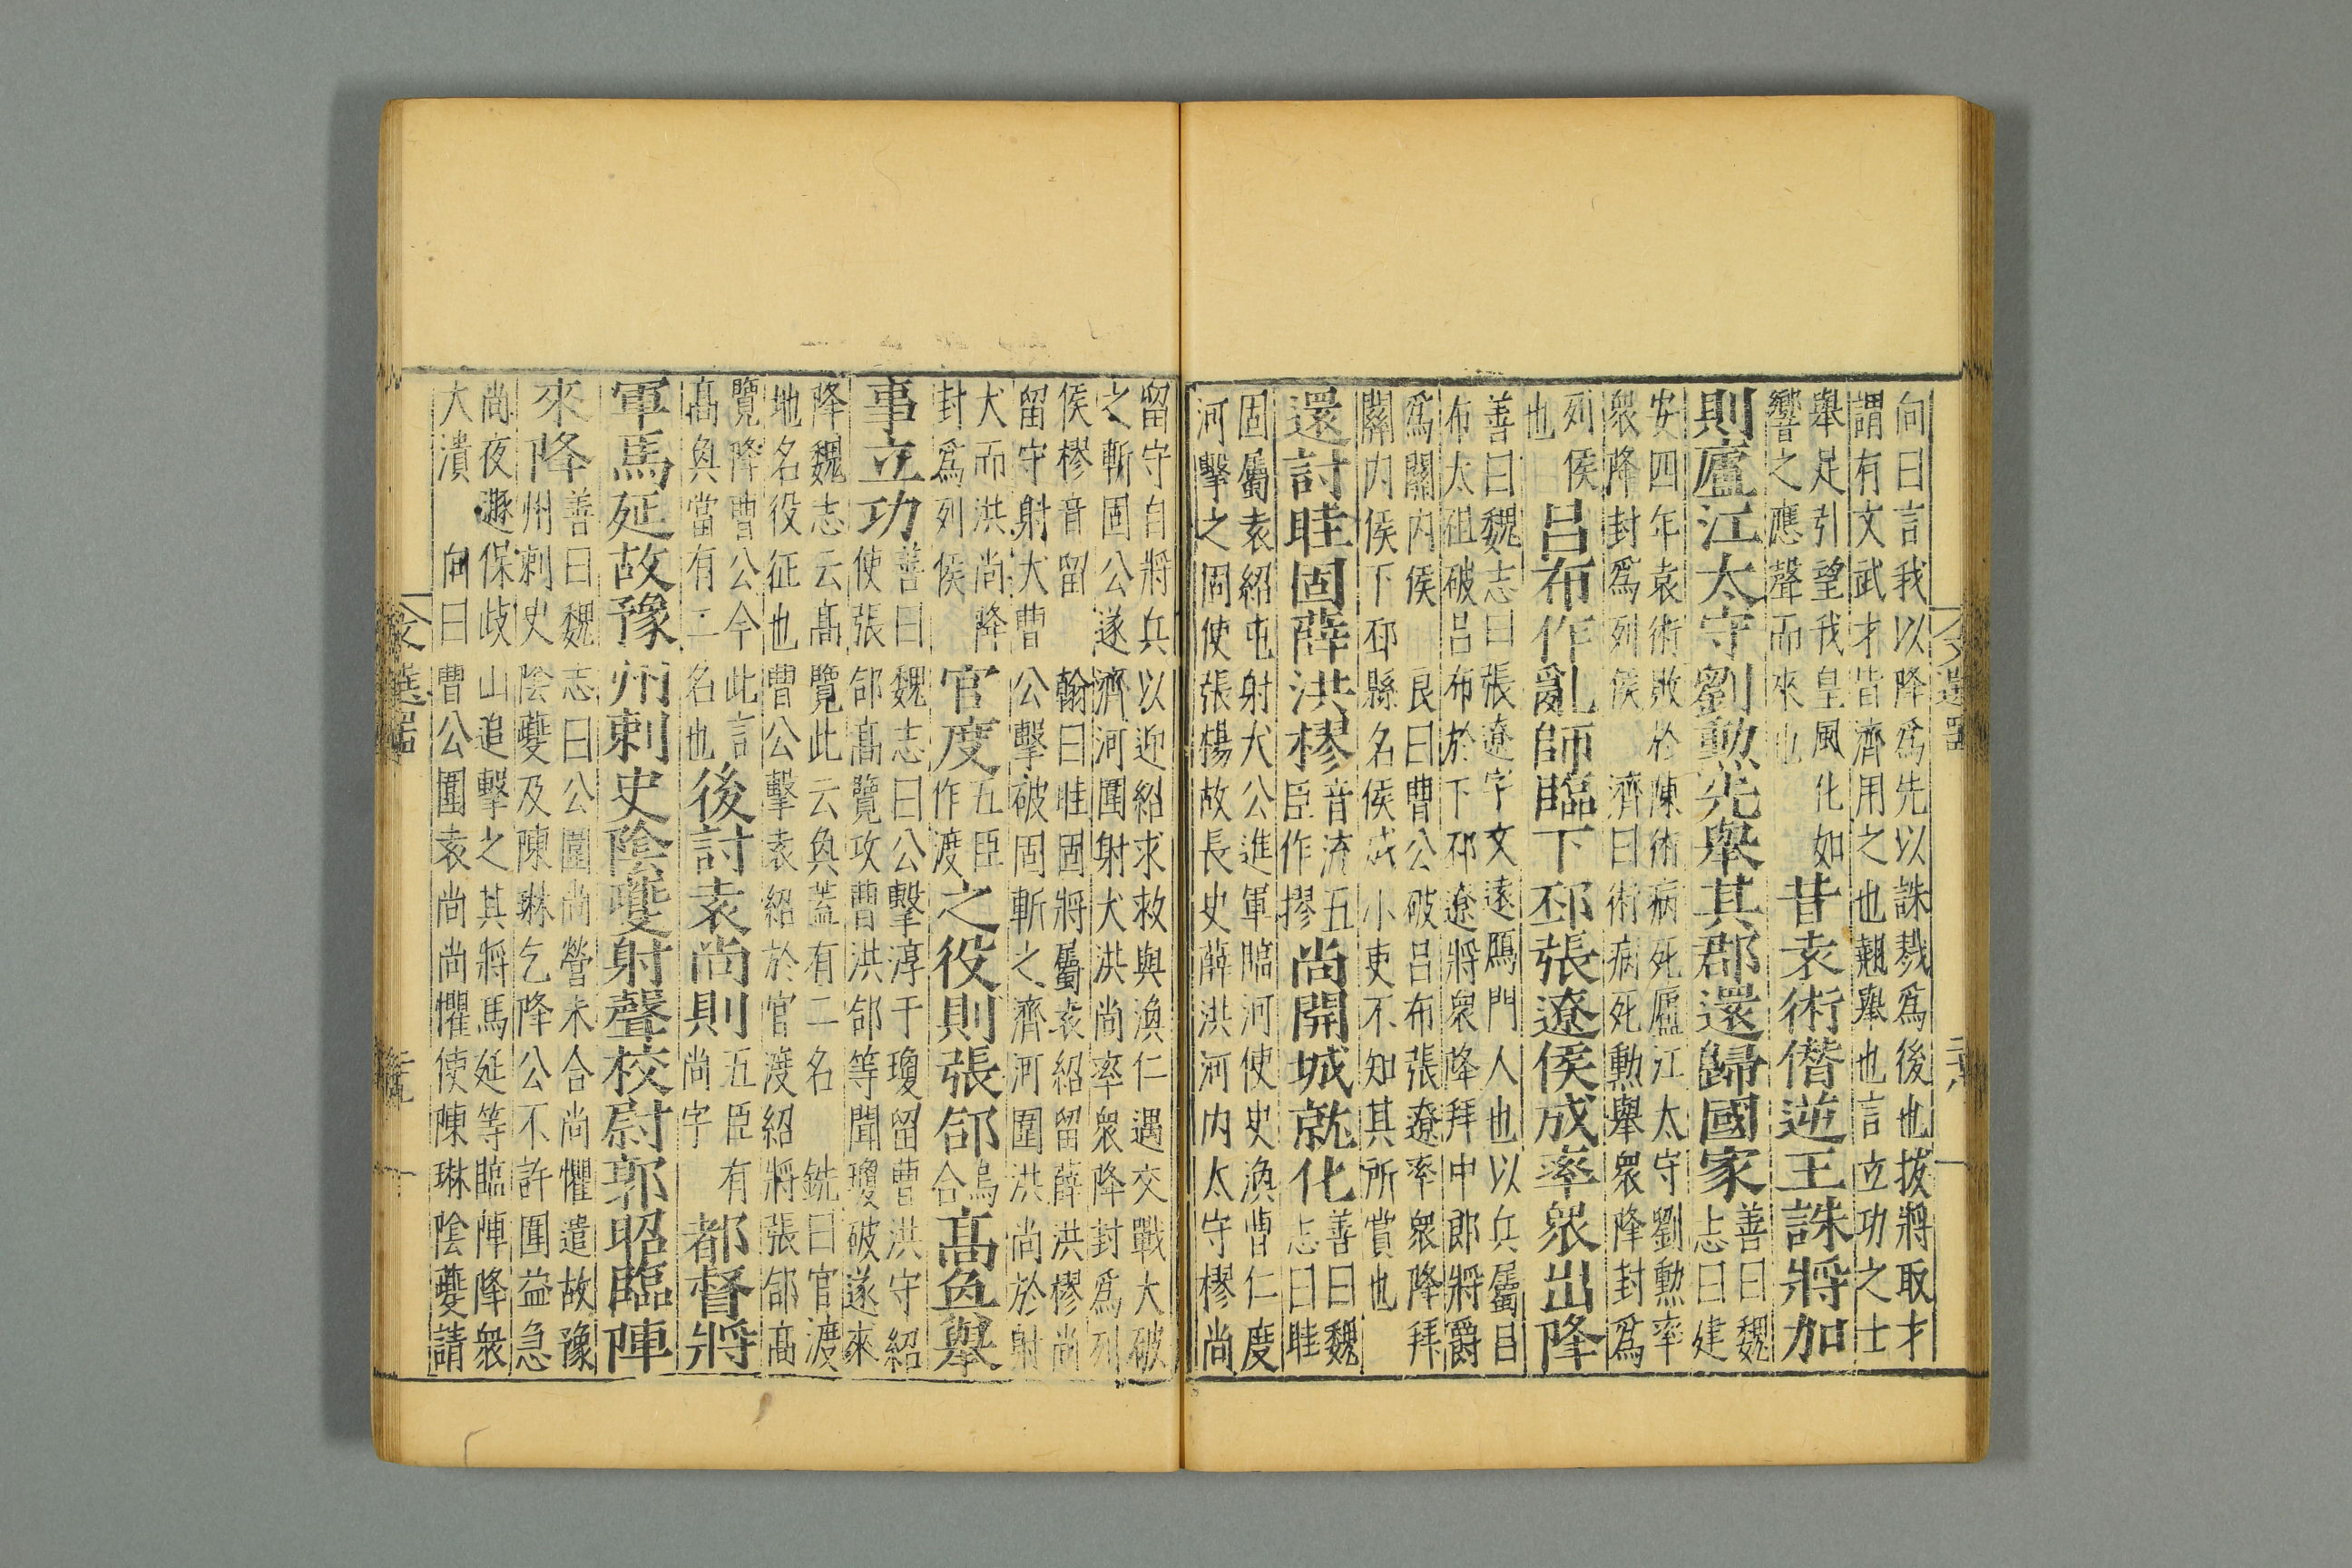 向曰言我以降爲先以誅戮爲後也拔將取才
謂有文武才皆濟用之也翹舉也言立功之士
舉足引望我皇風化如
響之應聲而來也
昔袁術僭逆王誅將加
則廬江太守劉勳先舉其郡還歸國家
善曰魏
志曰建
安四年袁術敗於陳術病死廬江太守劉勳率
衆降封爲列侯 濟曰術病死勳舉衆降封爲
列侯
也
呂布作亂師臨下邳張遼侯成率衆出降
善曰魏志曰張遼字文遠鴈門人也以兵屬目
布太祖破呂布於下邳遼將衆降拜中郎將爵
爲關内侯 良曰曹公破呂布張遼率衆降拜
關内侯下邳縣名侯成小吏不知其所賞也
還討眭固薛洪樛
音流五
臣作摎
尚開城就化
善曰魏
志曰眭
固屬袁紹屯射犬公進軍臨河使史渙曹仁度
河擊之固使張楊故長史薛洪河内太守樛尚
留守自將兵以迎紹求救與渙仁遇交戰大破
之斬固公遂濟河圍射犬洪尚率衆降封爲列
侯樛音留 翰曰眭固將屬袁紹留薛洪樛尚
留守射犬曹公擊破固斬之濟河圍洪尚於射
犬而洪尚降
封爲列侯
官度
五臣
作渡
之役則張郃
烏
合
高奐舉
事立功
善曰魏志曰公擊淳于瓊留曹洪守紹
使張郃高覽攻曹洪郃等聞瓊破遂來
降魏志云高覽此云奐蓋有二名 銑曰官渡
地名役征也曹公擊袁紹於官渡紹將張郃高
覽降曹公今此言
高奐當有二名也
後討袁尚則
五臣有
尚字
都督將
軍馬延故豫州刺史陰夔射聲校尉郭昭臨陣
來降
善曰魏志曰公圍尚營未合尚懼遣故豫
州刺史陰夔及陳琳乞降公不許圍益急
尚夜遯保歧山追擊之其將馬延等臨陣降衆
大潰 向曰曹公圍袁尚尚懼使陳琳陰夔請
文選